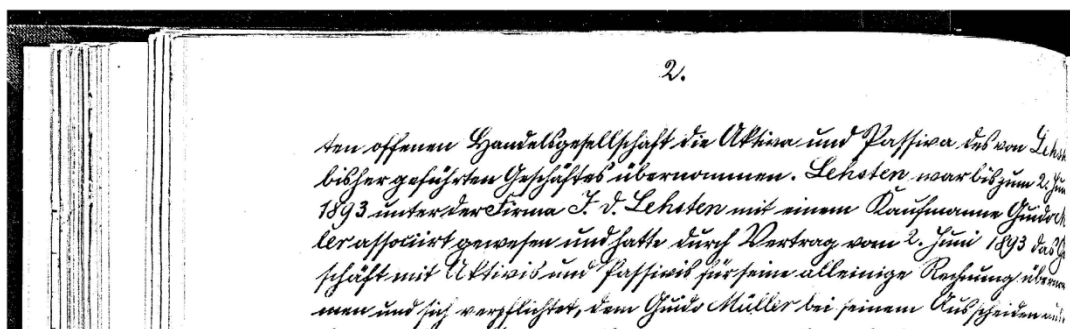 2.
ten offenen Handelsgesellschaft die Aktiva und Passiva des von
bisher geführten Geschäftes übernommen. Lehsten war bis zum 2.
1893 unter der Firma J. D. Lehsten mit einem Kaufmanne Guido
ler associirt gewesen und hatte durch Vertrag vom 2. Juni 1893 das
schäft mit Aktivis und Passivis für seine alleinige Rechnung
men und sich verpflichtet, dem Guido Müller bei seinem Ausscheiden